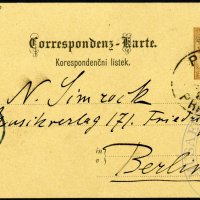 Correspondenz-Karte.
Korespondenční lístek.
N. Simrock
Musikverlag 171. Friedri
in
v
Berlin